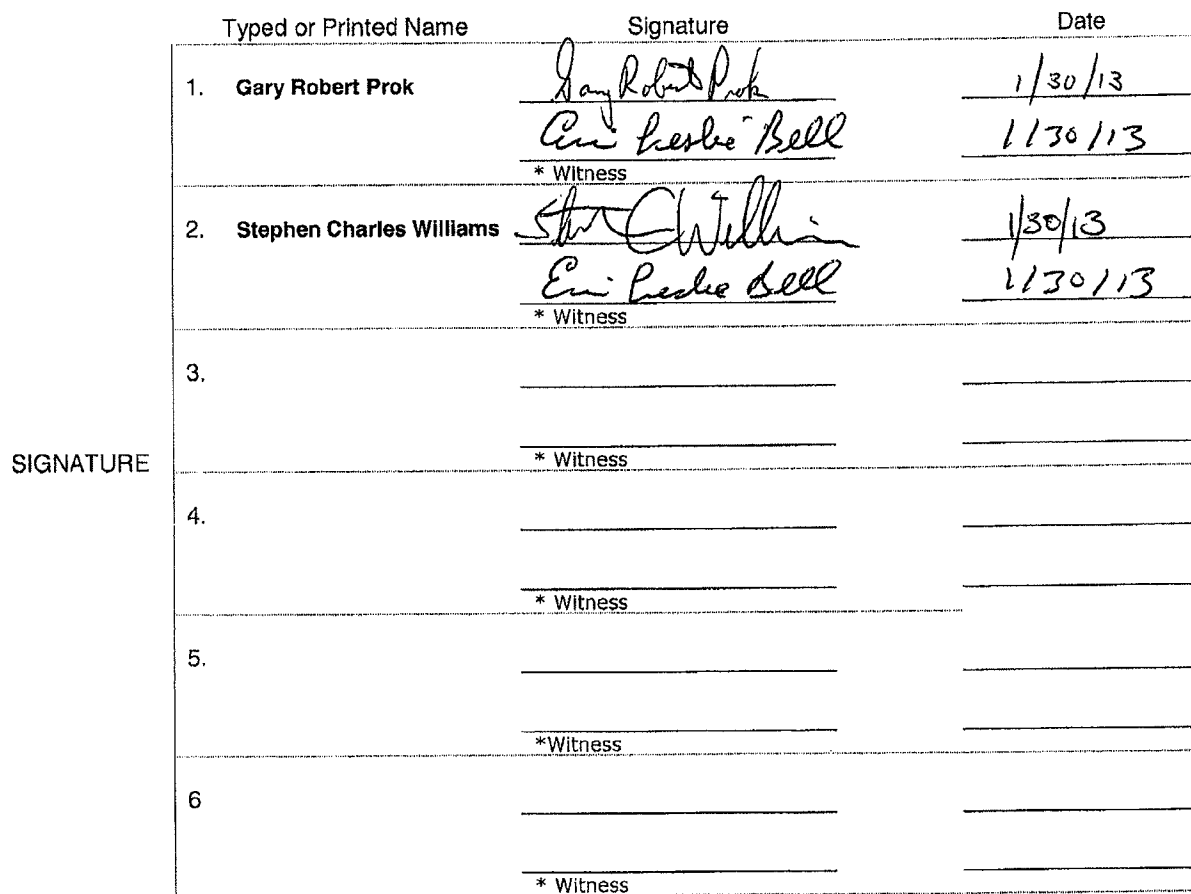 Typed or Printed Name Signature Date
1. Gary Robert Prok Gary Robert Prok 1/30/13
Erin Leslie Bell 1/30/13
* Witness
2. Stephen Charles Williams C Williams 1/30/13
Erin Leslie Bell 1/30/13
* Witness
3.
* Witness
SIGNATURE
4.
* Witness
5.
*Witness
6
* Witness